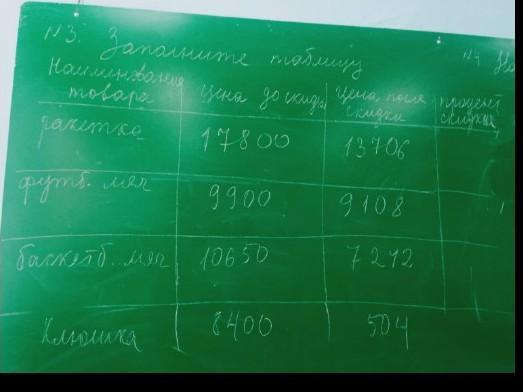 №3. Заполните таблицу
№4
Наименование товара
Цена до скидки
Цена после скидки
процент скидки
ракетка 17800 13706
футб. мяч 9900 9108
баскетб. мяч 10650 7242
Клюшка 8400 504